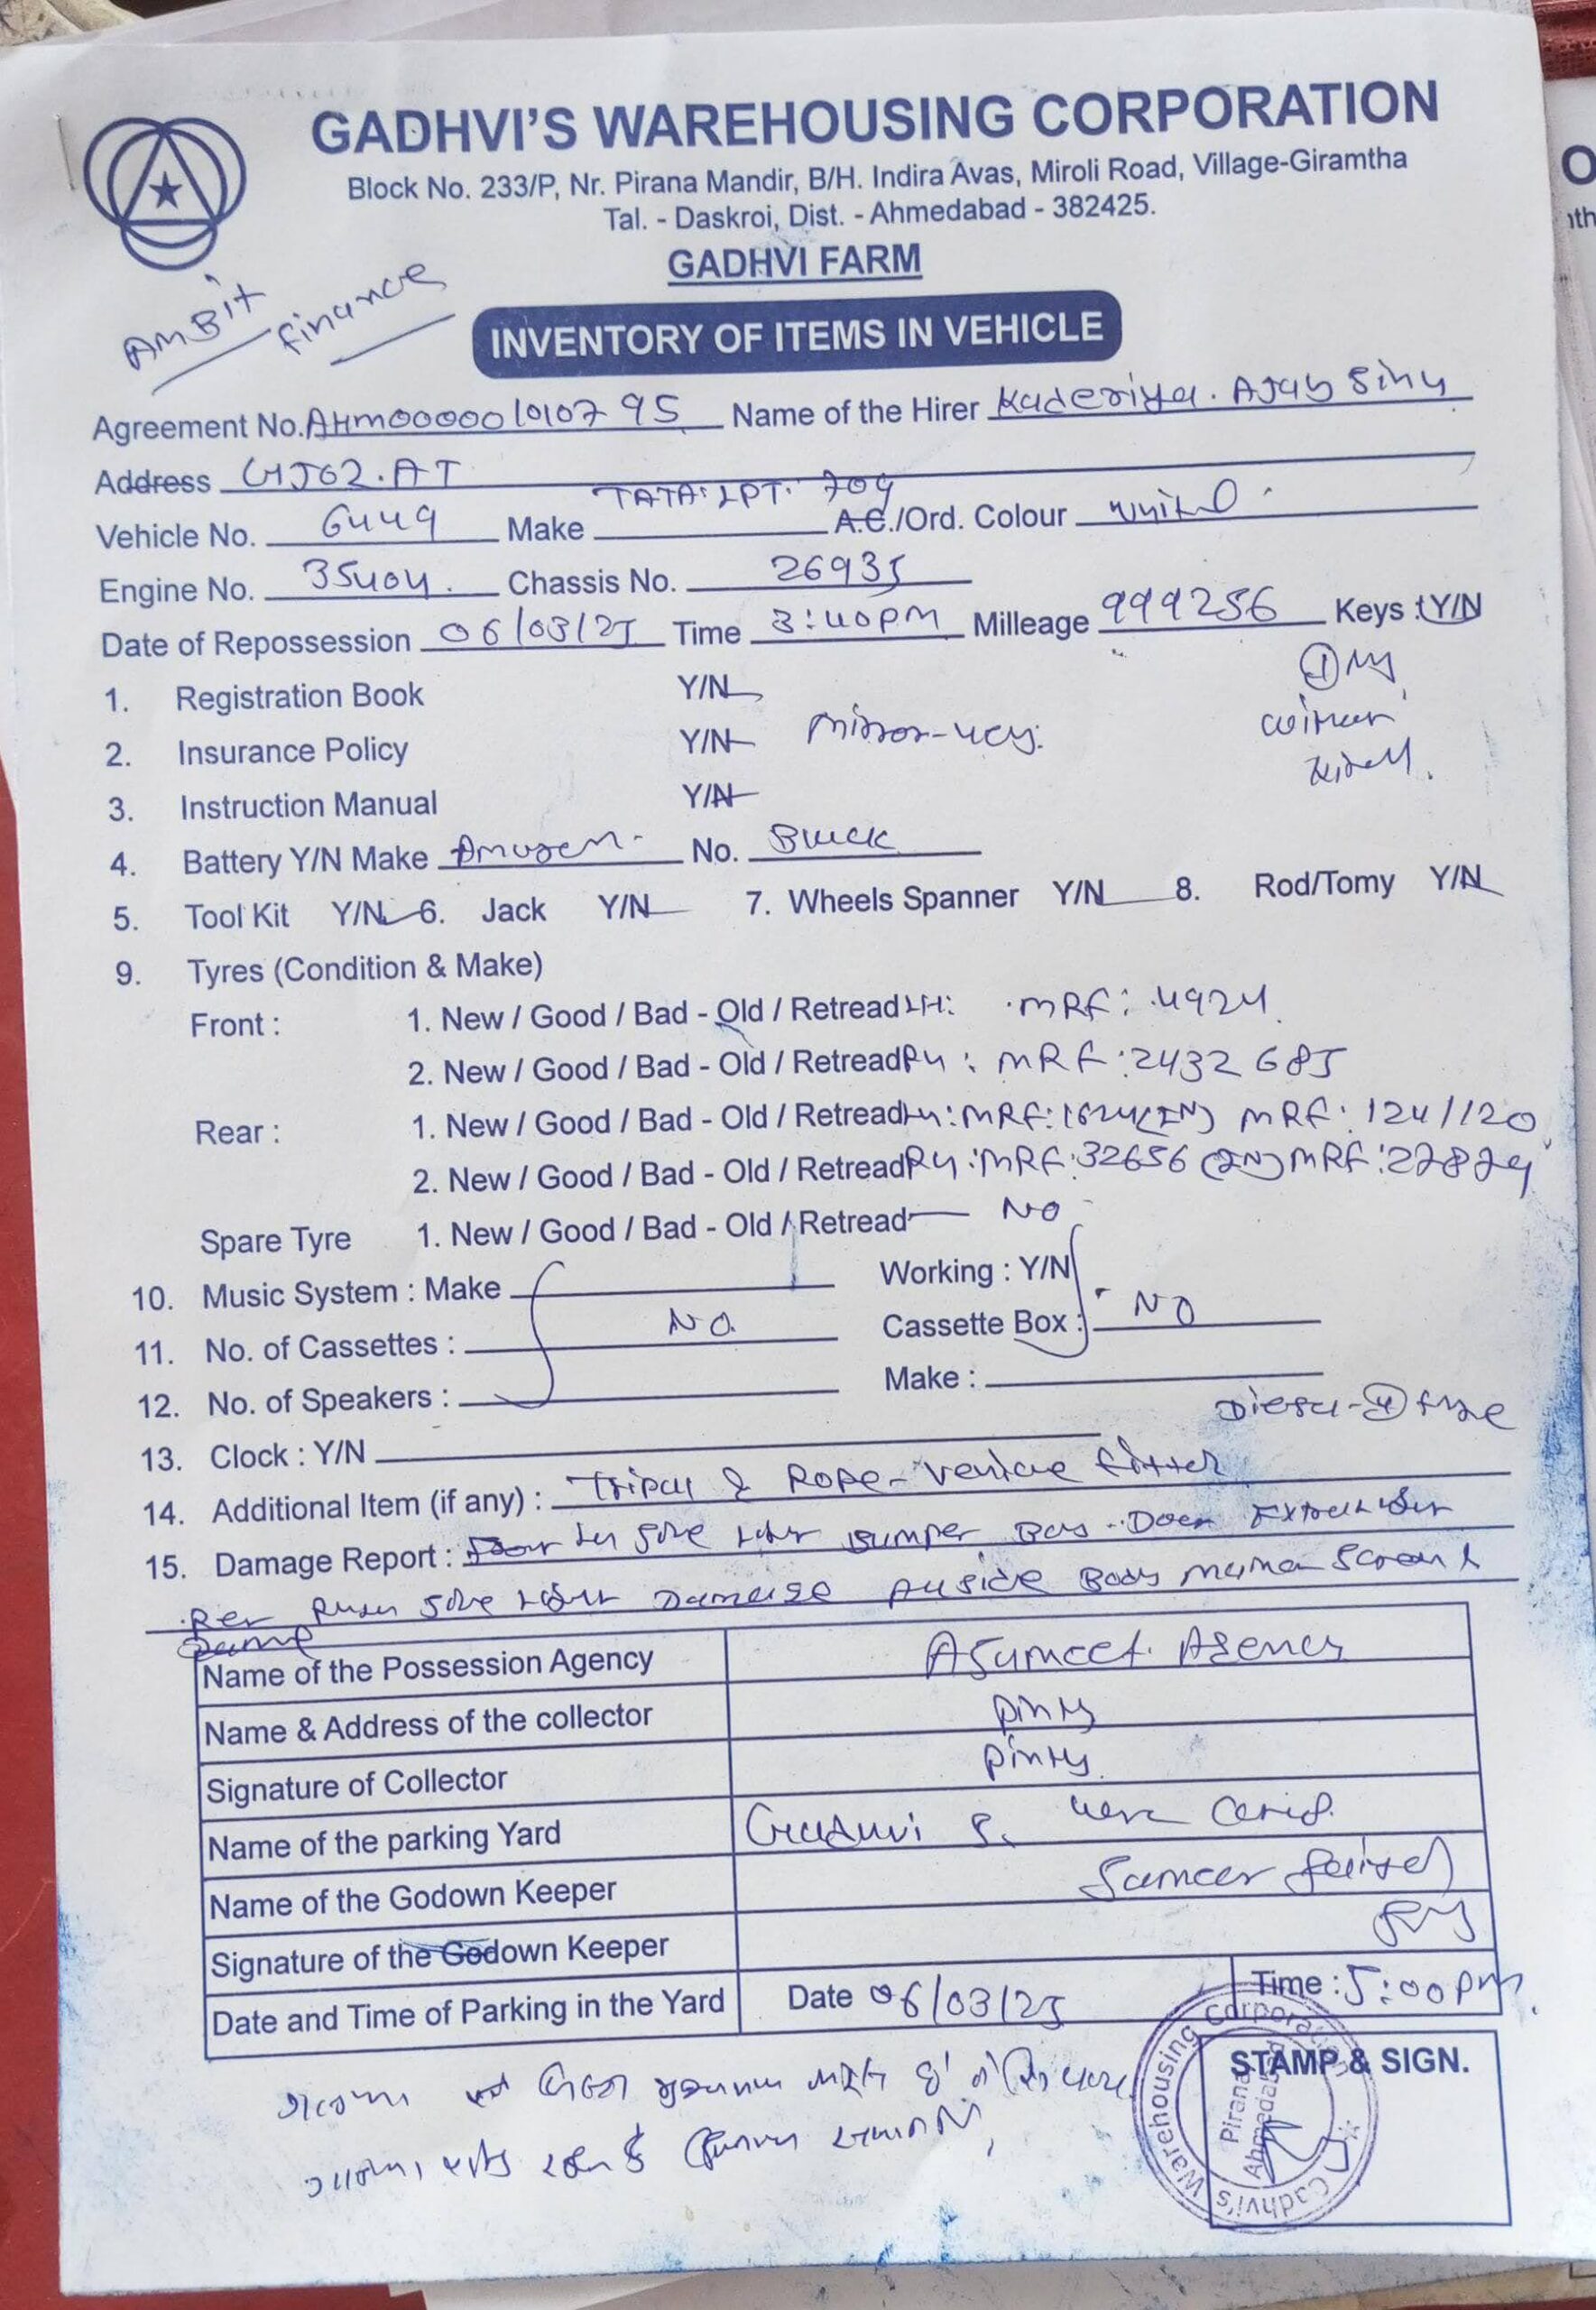 GADHVI'S WAREHOUSING CORPORATION
Block No. 233/P, Nr. Pirana Mandir, B/H. Indira Avas, Miroli Road, Village-Giramtha
Tal. - Daskroi, Dist. - Ahmedabad - 382425.
GADHVI FARM
AMBit finance
INVENTORY OF ITEMS IN VEHICLE
Agreement No. AHM000001010795 Name of the Hirer Kaderiya. Ajay Sinh
Address GJ02.AT
Vehicle No. 6449 Make TATA: LPT. 709 A.C./Ord. Colour White
Engine No. 35404. Chassis No. 26935
Date of Repossession 06/03/25 Time 3:40PM Milleage 999256 Keys : Y/N
1. Registration Book Y/N
2. Insurance Policy Y/N Mirror-
3. Instruction Manual Y/N
4. Battery Y/N Make No. Black
5. Tool Kit Y/N 6. Jack Y/N 7. Wheels Spanner Y/N 8. Rod/Tomy Y/N
9. Tyres (Condition & Make)
Front : 1. New / Good / Bad - Old / Retread LH: MRF: 4924
2. New / Good / Bad - Old / Retread RH: MRF: 2432685
Rear : 1. New / Good / Bad - Old / Retread LH: MRF: 1624(IN) MRF: 124/120
2. New / Good / Bad - Old / Retread RH: MRF: 32656 (IN) MRF: 27829
Spare Tyre 1. New / Good / Bad - Old / Retread NO
10. Music System : Make Working : Y/N
11. No. of Cassettes : NO Cassette Box : NO
12. No. of Speakers : Make :
Diesel-
13. Clock : Y/N
14. Additional Item (if any) : Tripal & Rope-
15. Damage Report : side light Bumper Body Door
side light Damage All side Body
Damage
Name of the Possession Agency Agency
Name & Address of the collector Pinty
Signature of Collector Pinty
Name of the parking Yard Gadhvi
Name of the Godown Keeper Sameer
Signature of the Godown Keeper
Date and Time of Parking in the Yard Date 06/03/25 Time : 5:00pm
STAMP & SIGN.
Gadhvi's Warehousing Corporation
Pirana
Ahmedabad